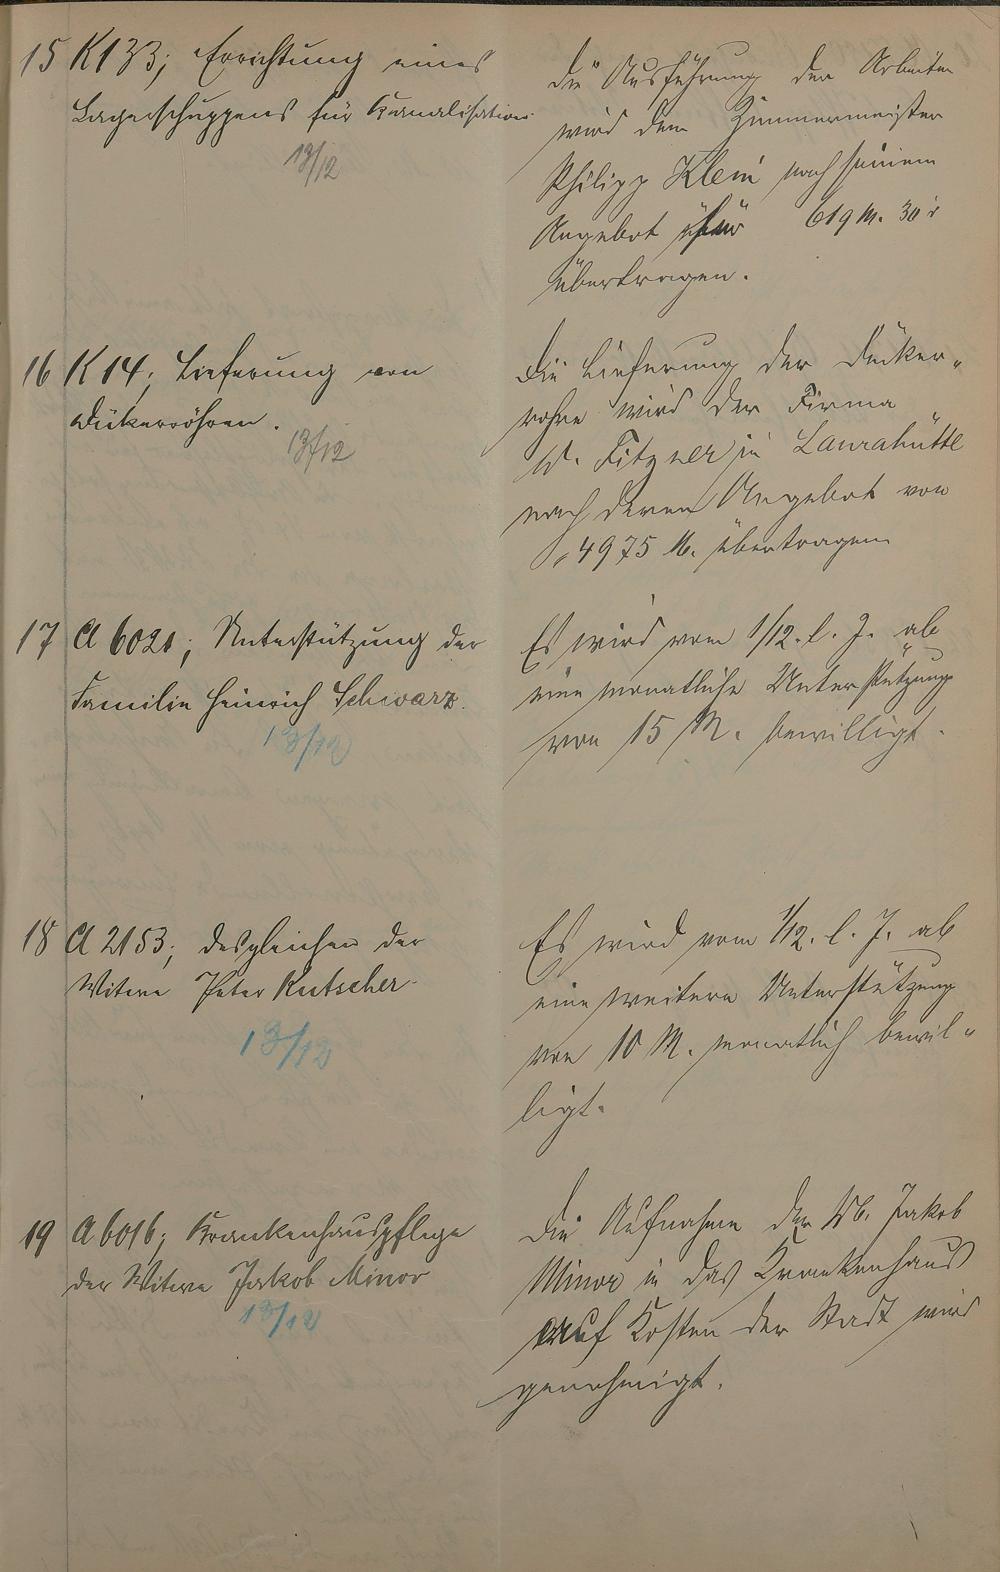 15 K133; Errichtung eines
Lagerschuppens für Kanalisation
13/12
Die Ausführung der Arbeiten
wird dem Zimmermeister
Philipp Klein nach seinem
Angebot für 619 M. 30 ₰
übertragen.
16 K14; Lieferung von
Dückerröhren.
13/12
Die Lieferung der Dücker-
rohre wird der Firma
W. Fitzner in Laurahütte
nach deren Angebot von
4975 M. übertragen
17 A 6021; Unterstützung der
Familie Heinrich Schwarz.
13/12
Es wird vom 1/12. l. J. ab
eine monatliche Unterstützung
von 15 M. bewilligt.
18 A 2153; desgleichen der
Witwe Peter Kutscher
13/12
Es wird vom 1/12. l. J. ab
eine weitere Unterstützung
von 10 M. monatlich bewil-
ligt.
19 A 6016; Krankenhauspflege
der Witwe Jakob Minor
13/12
Die Aufnahme der Wb. Jakob
Minor in das Krankenhaus
auf Kosten der Stadt wird
genehmigt.